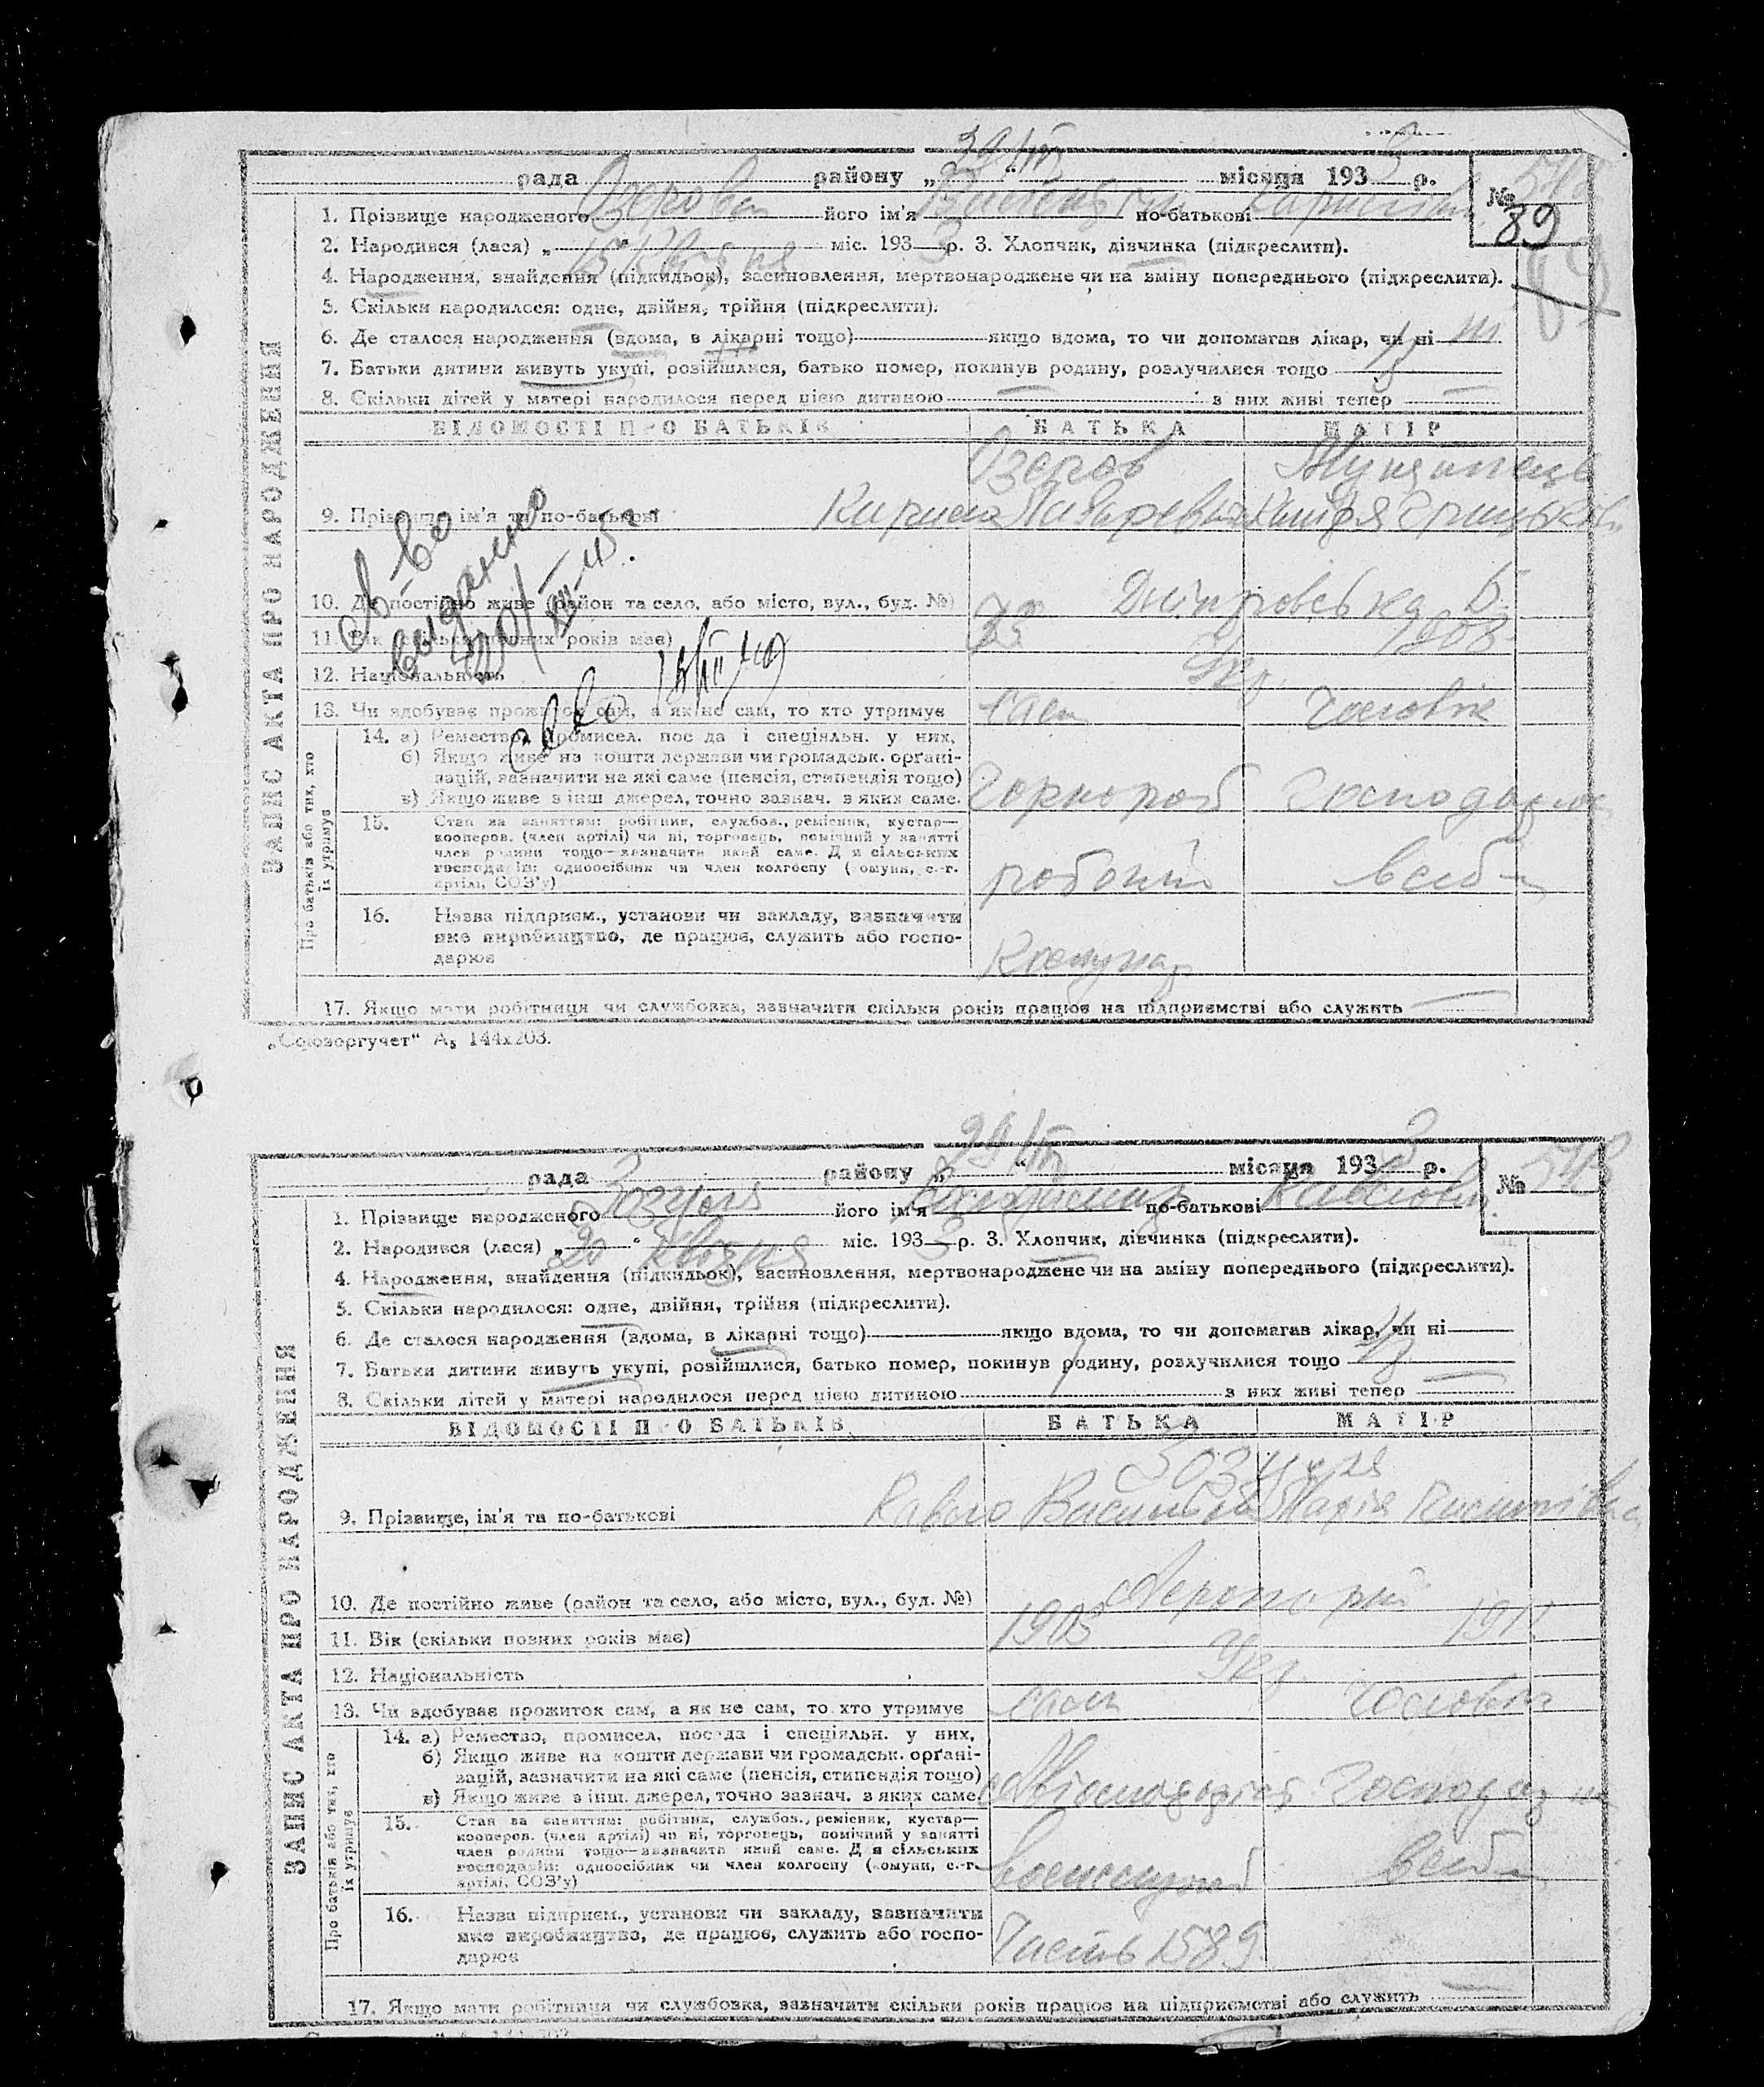 рада району „29“ місяця 1933 р. №
89
1. Прізвище народженого Озерова його ім'я по-батькові
2. Народився (лася) „15“ Квітня міс. 1933 р. 3. Хлопчик, дівчинка (підкреслити).
4. Народження, знайдення (підкидьок), засиновлення, мертвонароджене чи на зміну попереднього (підкреслити).
5. Скільки народилося: одне, двійня, трійня (підкреслити).
6. Де сталося народження (вдома, в лікарні тощо) якщо вдома, то чи допомагав лікар, чи ні
7. Батьки дитини живуть укупі, розійшлися, батько помер, покинув родину, розлучилися тощо
8. Скільки дітей у матері народилося перед цією дитиною — з них живі тепер —
ВІДОМОСТІ ПРО БАТЬКІВ БАТЬКА МАТІР
Озеров
9. Прізвище, ім'я та по-батькові
св-во
выданно
10. Де постійно живе (район та село, або місто, вул., буд. №) Дніпровська
11. Вік (скільки повних років має) 1908
12. Національність Укр
13. Чи здобуває прожиток сам, а як не сам, то хто утримує сам чоловік
14. а) Ремество, промисел, посада і спеціяльн. у них,
б) Якщо живе на кошти держави чи громадськ. орґані-
зацій, зазначити на які саме (пенсія, стипендія тощо)
в) Якщо живе з інш джерел, точно зазнач. з яких саме. Чорнороб Господарка
15. Стан за заняттям: робітник, службов., ремісник, кустар—
кооперов. (член артілі) чи ні, торговець, помічний у занятті
член родини тощо—зазначити який саме. Для сільських
господарів: одноосібник чи член колгоспу (комуни, с.-г.
артілі, СОЗ'у) робочий
16. Назва підприєм., установи чи закладу, зазначити
яке виробництво, де працює, служить або госпо-
дарює Комунар
17. Якщо мати робітниця чи службовка, зазначити скільки років працює на підприємстві або служить —
ЗАПИС АКТА ПРО НАРОДЖЕННЯ
Про батьків або тих, хто
їх утримує
„Союзоргучет“ А₅ 144x203.
рада району „29“ місяця 1933 р. №
1. Прізвище народженого Зозуля його ім'я по-батькові Павлович
2. Народився (лася) „20“ Квітня міс. 1933 р. 3. Хлопчик, дівчинка (підкреслити).
4. Народження, знайдення (підкидьок), засиновлення, мертвонароджене чи на зміну попереднього (підкреслити).
5. Скільки народилося: одне, двійня, трійня (підкреслити).
6. Де сталося народження (вдома, в лікарні тощо) якщо вдома, то чи допомагав лікар, чи ні
7. Батьки дитини живуть укупі, розійшлися, батько помер, покинув родину, розлучилися тощо
8. Скільки дітей у матері народилося перед цією дитиною з них живі тепер —
ВІДОМОСТІ ПРО БАТЬКІВ БАТЬКА МАТІР
Зозуля
9. Прізвище, ім'я та по-батькові Павло Марія
10. Де постійно живе (район та село, або місто, вул., буд. №) Аеропорт
11. Вік (скільки повних років має) 1905 1911
12. Національність Укр
13. Чи здобуває прожиток сам, а як не сам, то хто утримує сам чоловік
14. а) Ремество, промисел, посада і спеціяльн. у них,
б) Якщо живе на кошти держави чи громадськ. орґані-
зацій, зазначити на які саме (пенсія, стипендія тощо)
в) Якщо живе з інш. джерел, точно зазнач. з яких саме. Господарка
15. Стан за заняттям: робітник, службов., ремісник, кустар—
кооперов. (член артілі) чи ні, торговець, помічний у занятті
член родини тощо—зазначити який саме. Для сільських
господарів: одноосібник чи член колгоспу (комуни, с.-г.
артілі, СОЗ'у)
16. Назва підприєм., установи чи закладу, зазначити
яке виробництво, де працює, служить або госпо-
дарює Часть 1589
17. Якщо мати робітниця чи службовка, зазначити скільки років працює на підприємстві або служить —
ЗАПИС АКТА ПРО НАРОДЖЕННЯ
Про батьків або тих, хто
їх утримує